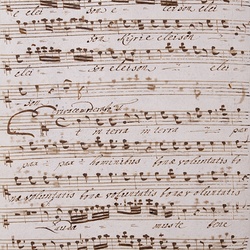 e elei son e eleison elei
son Kyrie eleison
elei son eleison elei
son
et in terra in terra pax
pax pax hominibus bonæ voluntatis bo
næ voluntatis bonæ voluntatis bonæ voluntatis
Lauda mus te bene